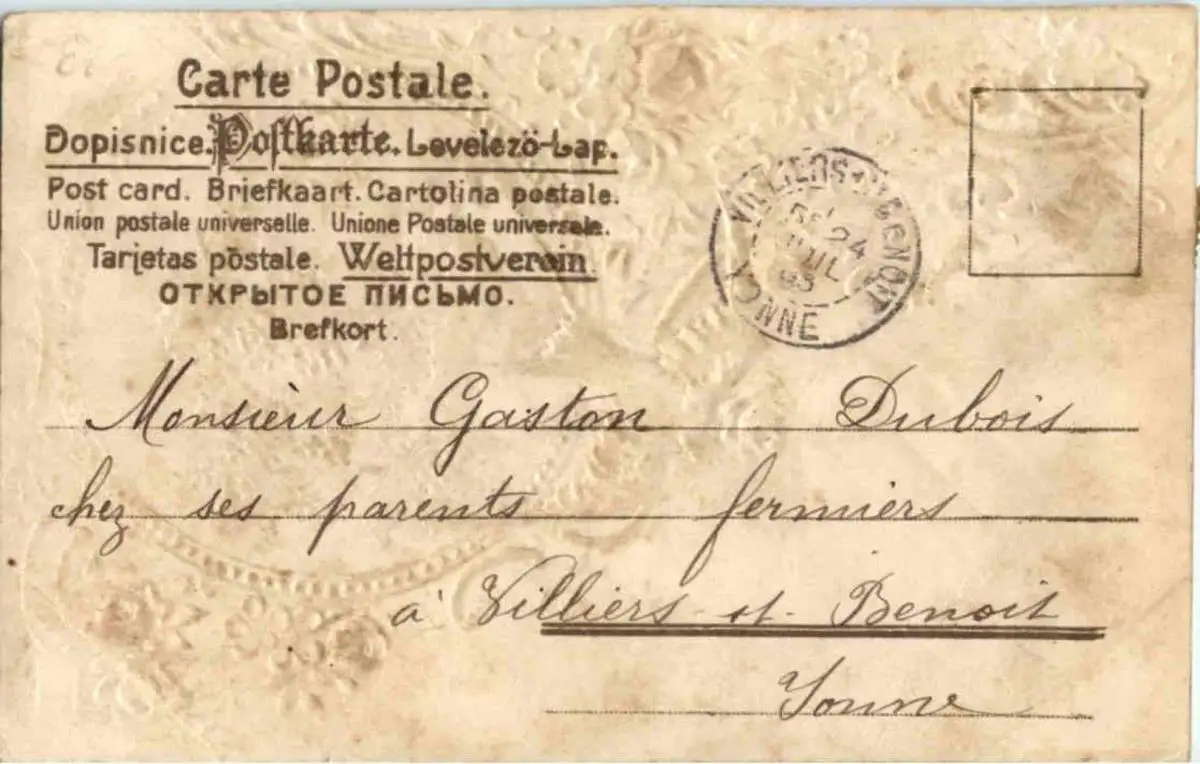 Carte Postale.
Dopisnice. Postkarte. Levelező-Lap.
Post card. Briefkaart. Cartolina postale.
Union postale universelle. Unione Postale universale.
Tarjetas postale. Weltpostverein
ОТКРЫТОЕ ПИСЬМО.
Brefkort.
VILLIERS-ST-BENOIT
24
JUIL
YONNE
Monsieur Gaston Dubois
chez ses parents fermiers
à Villiers st. Benoit
Yonne